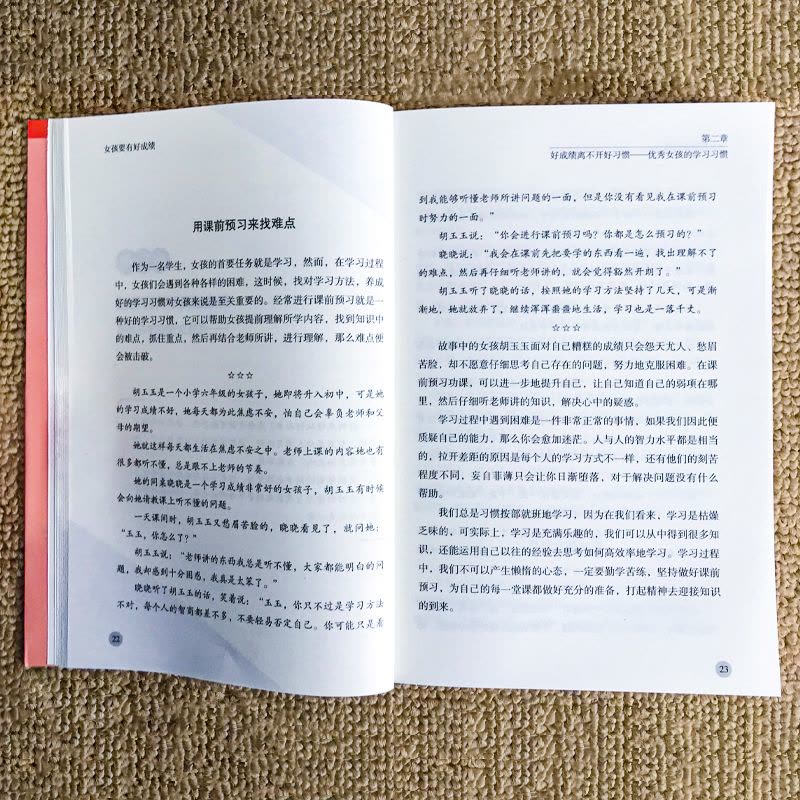 女孩要有好成绩
用课前预习来找难点
作为一名学生，女孩的首要任务就是学习，然而，在学习过程
中，女孩们会遇到各种各样的困难，这时候，找对学习方法，养成
好的学习习惯对女孩来说是至关重要的。经常进行课前预习就是一
种好的学习习惯，它可以帮助女孩提前理解所学内容，找到知识中
的难点，抓住重点，然后再结合老师所讲，进行理解，那么难点便
会被击破。
☆☆☆
胡玉玉是一个小学六年级的女孩子，她即将升入初中，可是她
的学习成绩不好，她每天都为此焦虑不安，怕自己会辜负老师和父
母的期望。
她就这样每天都生活在焦虑不安之中。老师上课的内容她也有
很多都听不懂，总是跟不上老师的节奏。
她的同桌晓晓是一个学习成绩非常好的女孩子，胡玉玉有时候
会向她请教课上听不懂的问题。
一天课间时，胡玉玉又愁眉苦脸的，晓晓看见了，就问她：
“玉玉，你怎么了？”
胡玉玉说：“老师讲的东西我总是听不懂，大家都能明白的问
题，我却感到十分困惑，我真是太笨了。”
晓晓听了胡玉玉的话，笑着说：“玉玉，你只不过是学习方法
不对，每个人的智商都差不多，不要轻易否定自己。你可能只是看
22
第二章
好成绩离不开好习惯——优秀女孩的学习习惯
到我能够听懂老师所讲问题的一面，但是你没有看见我在课前预习
时努力的一面。”
胡玉玉说：“你会进行课前预习吗？你都是怎么预习的？”
晓晓说：“我会在课前先把要学的东西看一遍，找出理解不了
的难点，然后再仔细听老师讲的，就会觉得豁然开朗了。”
胡玉玉听了晓晓的话，按照她的学习方法坚持了几天，可是渐
渐地，她就放弃了，继续浑浑噩噩地生活，学习也是一落千丈。
☆☆☆
故事中的女孩胡玉玉面对自己糟糕的成绩只会怨天尤人，愁眉
苦脸，却不愿意仔细思考自己存在的问题，努力地克服困难。在课
前预习功课，可以进一步地提升自己，让自己知道自己的弱项在哪
里，然后仔细听老师讲的知识，解决心中的疑惑。
学习过程中遇到困难是一件非常正常的事情，如果我们因此便
质疑自己的能力，那么你会愈加迷茫。人与人的智力水平都是相当
的，拉开差距的原因是每个人的学习方式不一样，还有他们的刻苦
程度不同，妄自菲薄只会让你日渐堕落，对于解决问题没有什么
帮助。
我们总是习惯按部就班地学习，因为在我们看来，学习是枯燥
乏味的，可实际上，学习是充满乐趣的，我们可以从中得到很多知
识，还能运用自己以往的经验去思考如何高效率地学习。学习过程
中，我们不可以产生懒惰的心态，一定要勤学苦练，坚持做好课前
预习，为自己的每一堂课都做好充分的准备，打起精神去迎接知识
的到来。
23